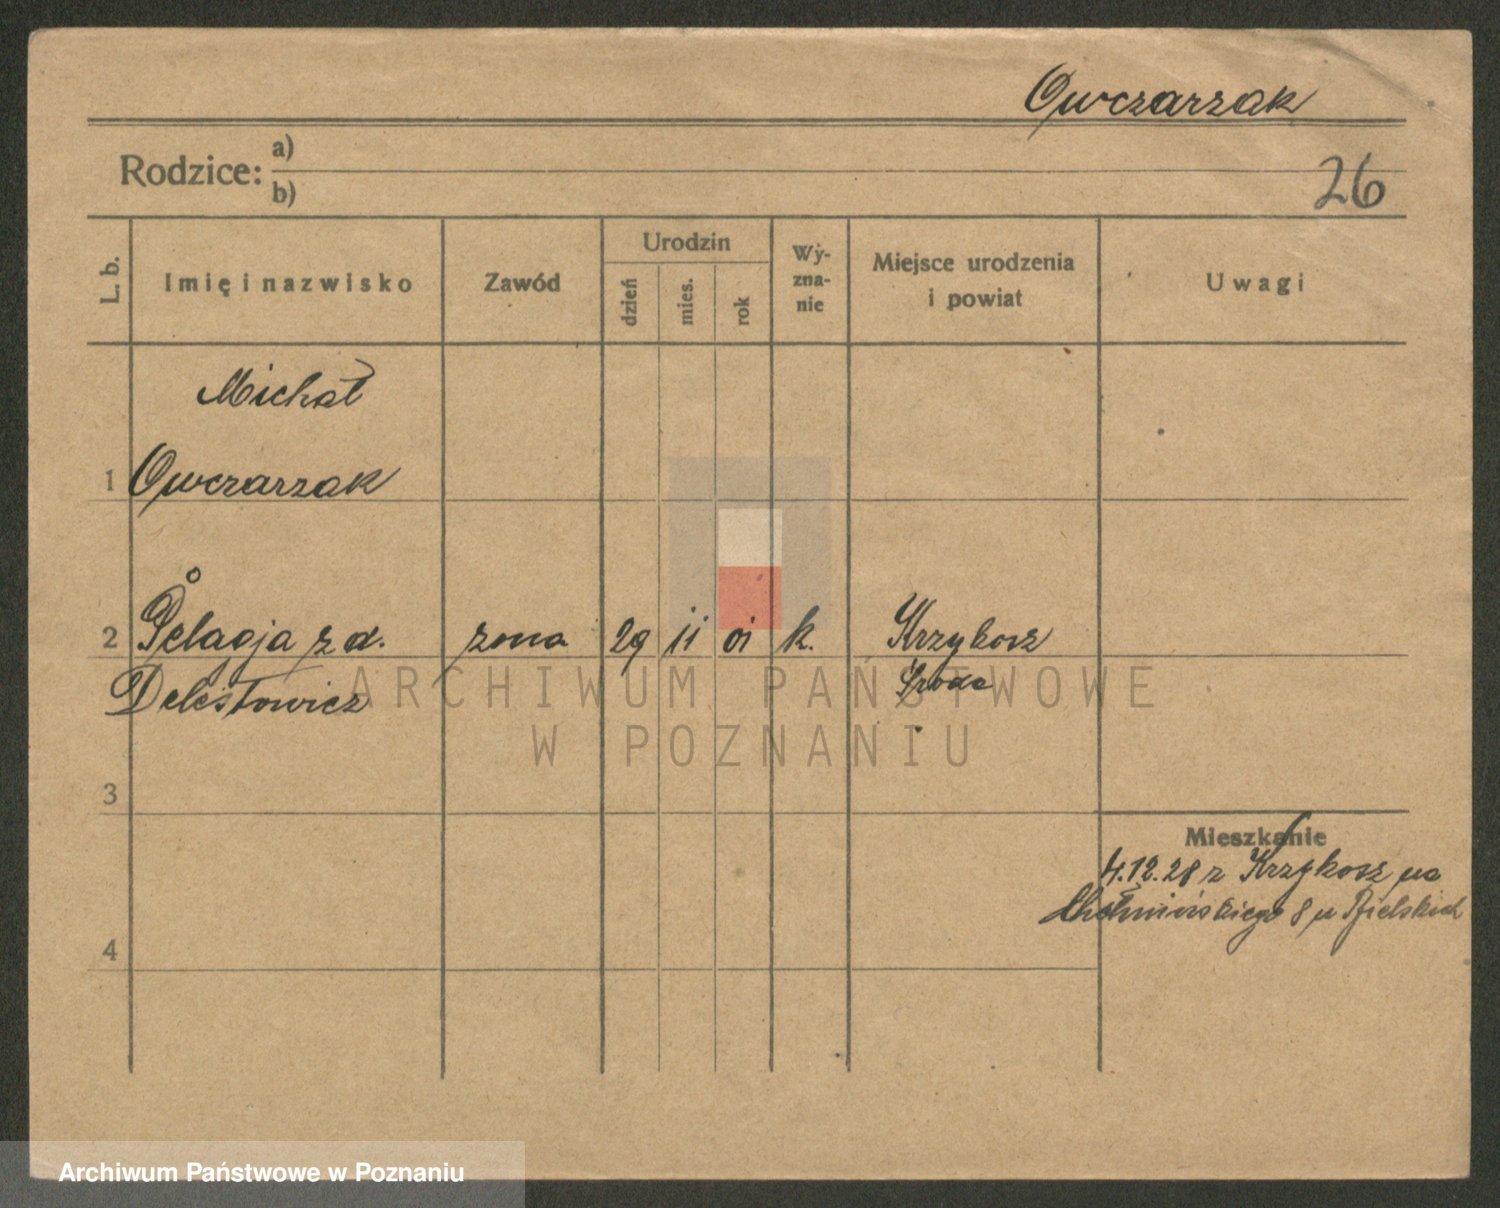 Owczarzak
Rodzice: a)
b)
26
L. b.
Imię i nazwisko
Zawód
Urodzin
dzień
mies.
rok
Wy-
zna-
nie
Miejsce urodzenia
i powiat
Uwagi
Michał
1 Owczarzak
2 Pelagja z d. żona 29 11 01 k. Krzykosz
Delestowicz Środa
3
Mieszkanie
4.12.28 z Krzykosz na
8 u Bielskich
4
ARCHIWUM PAŃSTWOWE
W POZNANIU
Archiwum Państwowe w Poznaniu